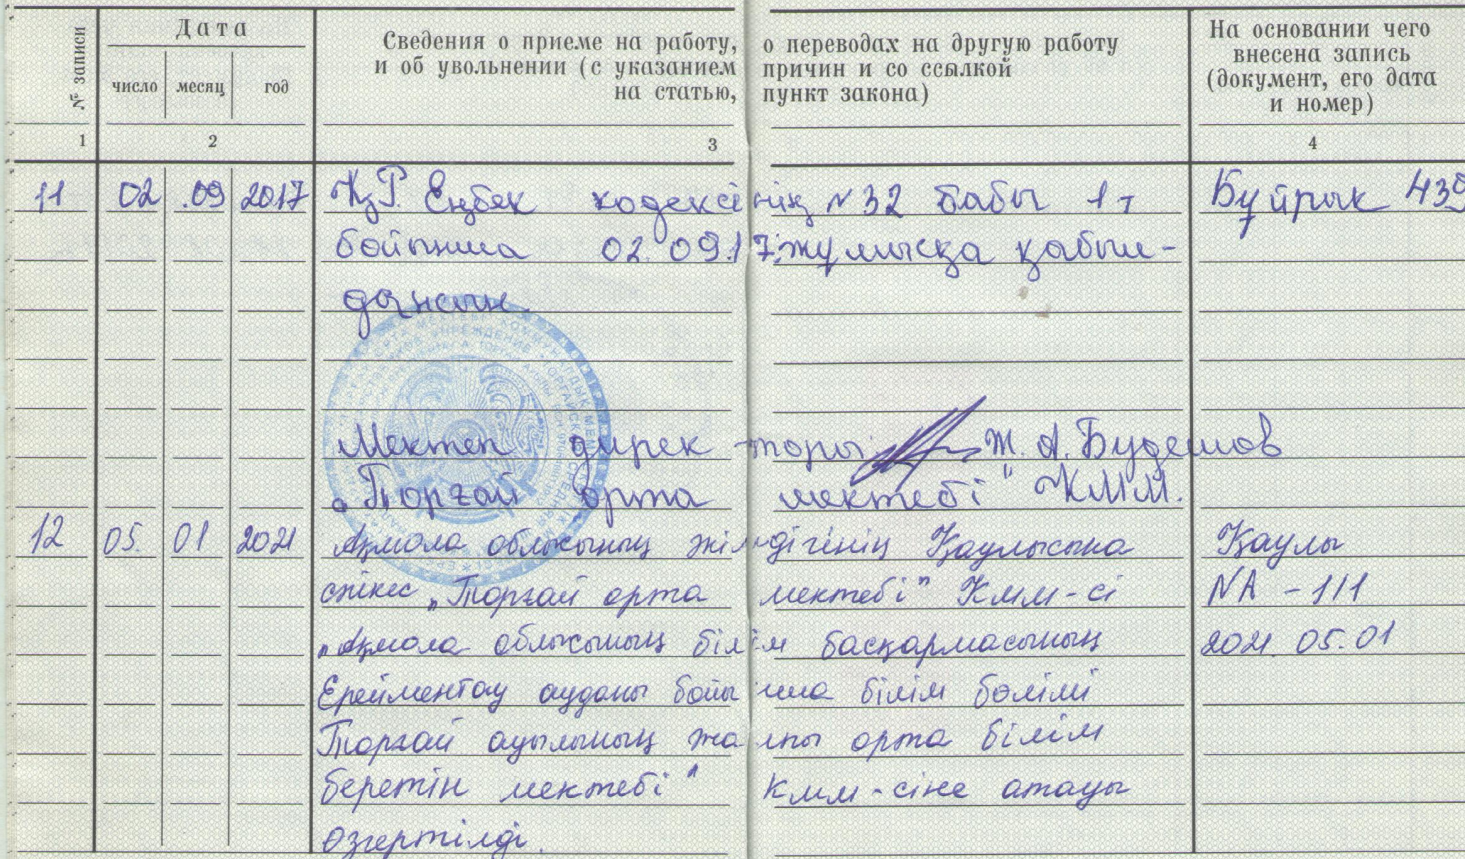 № записи
Дата
число месяц год
Сведения о приеме на работу, о переводах на другую работу
и об увольнении (с указанием причин и со ссылкой
на статью, пункт закона)
На основании чего
внесена запись
(документ, его дата
и номер)
1 2 3 4
11 02 .09 2017 ҚР. Еңбек кодексінің №32 бабы 1т Бұйрық 439
бойынша 02.09.17. жұмысқа қабыл-
дансын.
Мектеп директоры Ж.А.Будешов
"Торғай орта мектебі" КММ.
12 05. 01 2021 Ақмола облысының әкімдігінің Қаулысына Қаулы
сәйкес "Торғай орта мектебі" КММ-сі №А-1/1
"Ақмола облысының білім басқармасының 2021.05.01
Ерейментау ауданы бойынша білім бөлімі
Торғай ауылының жалпы орта білім
беретін мектебі" КММ-сіне атауы
өзгертілді.